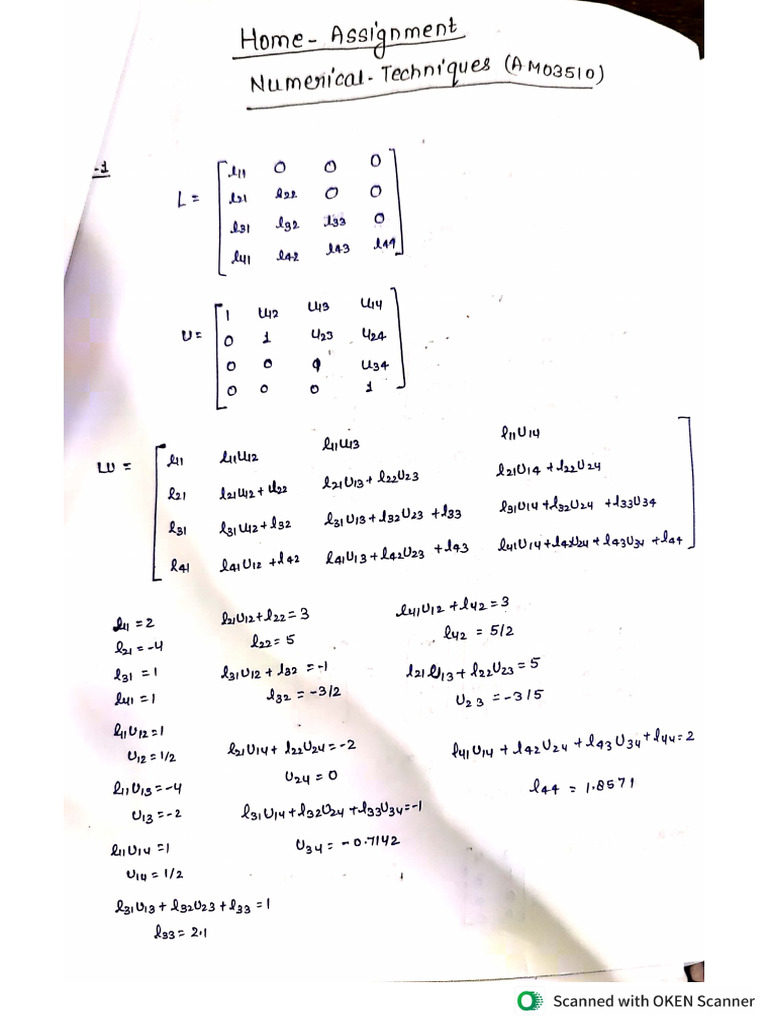 Home - Assignment
Numerical - Techniques (AM03510)
-1
L = [ l11 0 0 0
l21 l22 0 0
l31 l32 l33 0
l41 l42 l43 l44 ]
U = [ 1 U12 U13 U14
0 1 U23 U24
0 0 1 U34
0 0 0 1 ]
LU = [ l11 l11U12 l11U13 l11U14
l21 l21U12 + l22 l21U13 + l22U23 l21U14 + l22U24
l31 l31U12 + l32 l31U13 + l32U23 + l33 l31U14 + l32U24 + l33U34
l41 l41U12 + l42 l41U13 + l42U23 + l43 l41U14 + l42U24 + l43U34 + l44 ]
l11 = 2
l21 = -4
l31 = 1
l41 = 1
l11U12 = 1
U12 = 1/2
l11U13 = -4
U13 = -2
l11U14 = 1
U14 = 1/2
l31U13 + l32U23 + l33 = 1
l33 = 2.1
l21U12 + l22 = 3
l22 = 5
l31U12 + l32 = -1
l32 = -3/2
l21U14 + l22U24 = -2
U24 = 0
l31U14 + l32U24 + l33U34 = -1
U34 = -0.7142
l41U12 + l42 = 3
l42 = 5/2
l21U13 + l22U23 = 5
U23 = -3/5
l41U14 + l42U24 + l43U34 + l44 = 2
l44 = 1.8571
Scanned with OKEN Scanner